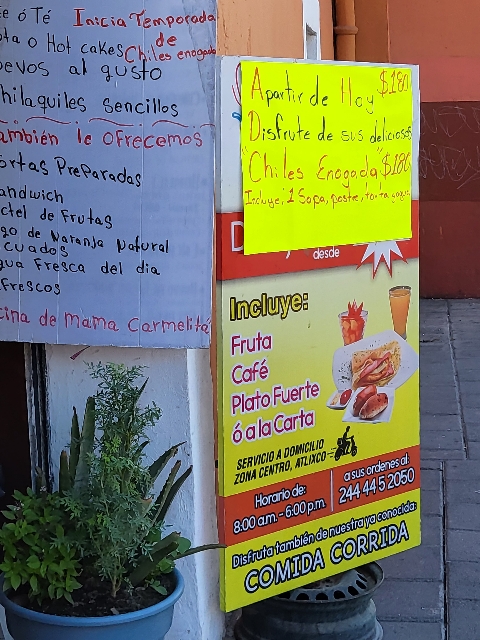 ó Té Inicia Temporada
de
o Hot cakes Chiles enogada
al gusto
hilaquiles sencillos
ambién le ofrecemos
ortas Preparadas
andwich
ctel de Frutas
go de Naranja Natural
cuados
gua fresca del día
frescos
cina de Mama Carmelita
Apartir de Hoy $180
Disfrute de sus deliciosos
"Chiles Enogada" $180
Incluye: 1 Sopa, postre, torta, agua
D
desde
Incluye:
Fruta
Café
Plato Fuerte
ó a la Carta
SERVICIO A DOMICILIO
ZONA CENTRO, ATLIXCO
Horario de:
8:00 a.m. - 6:00 p.m.
a sus ordenes al:
244 44 5 2050
Disfruta también de nuestra ya conocida:
COMIDA CORRIDA